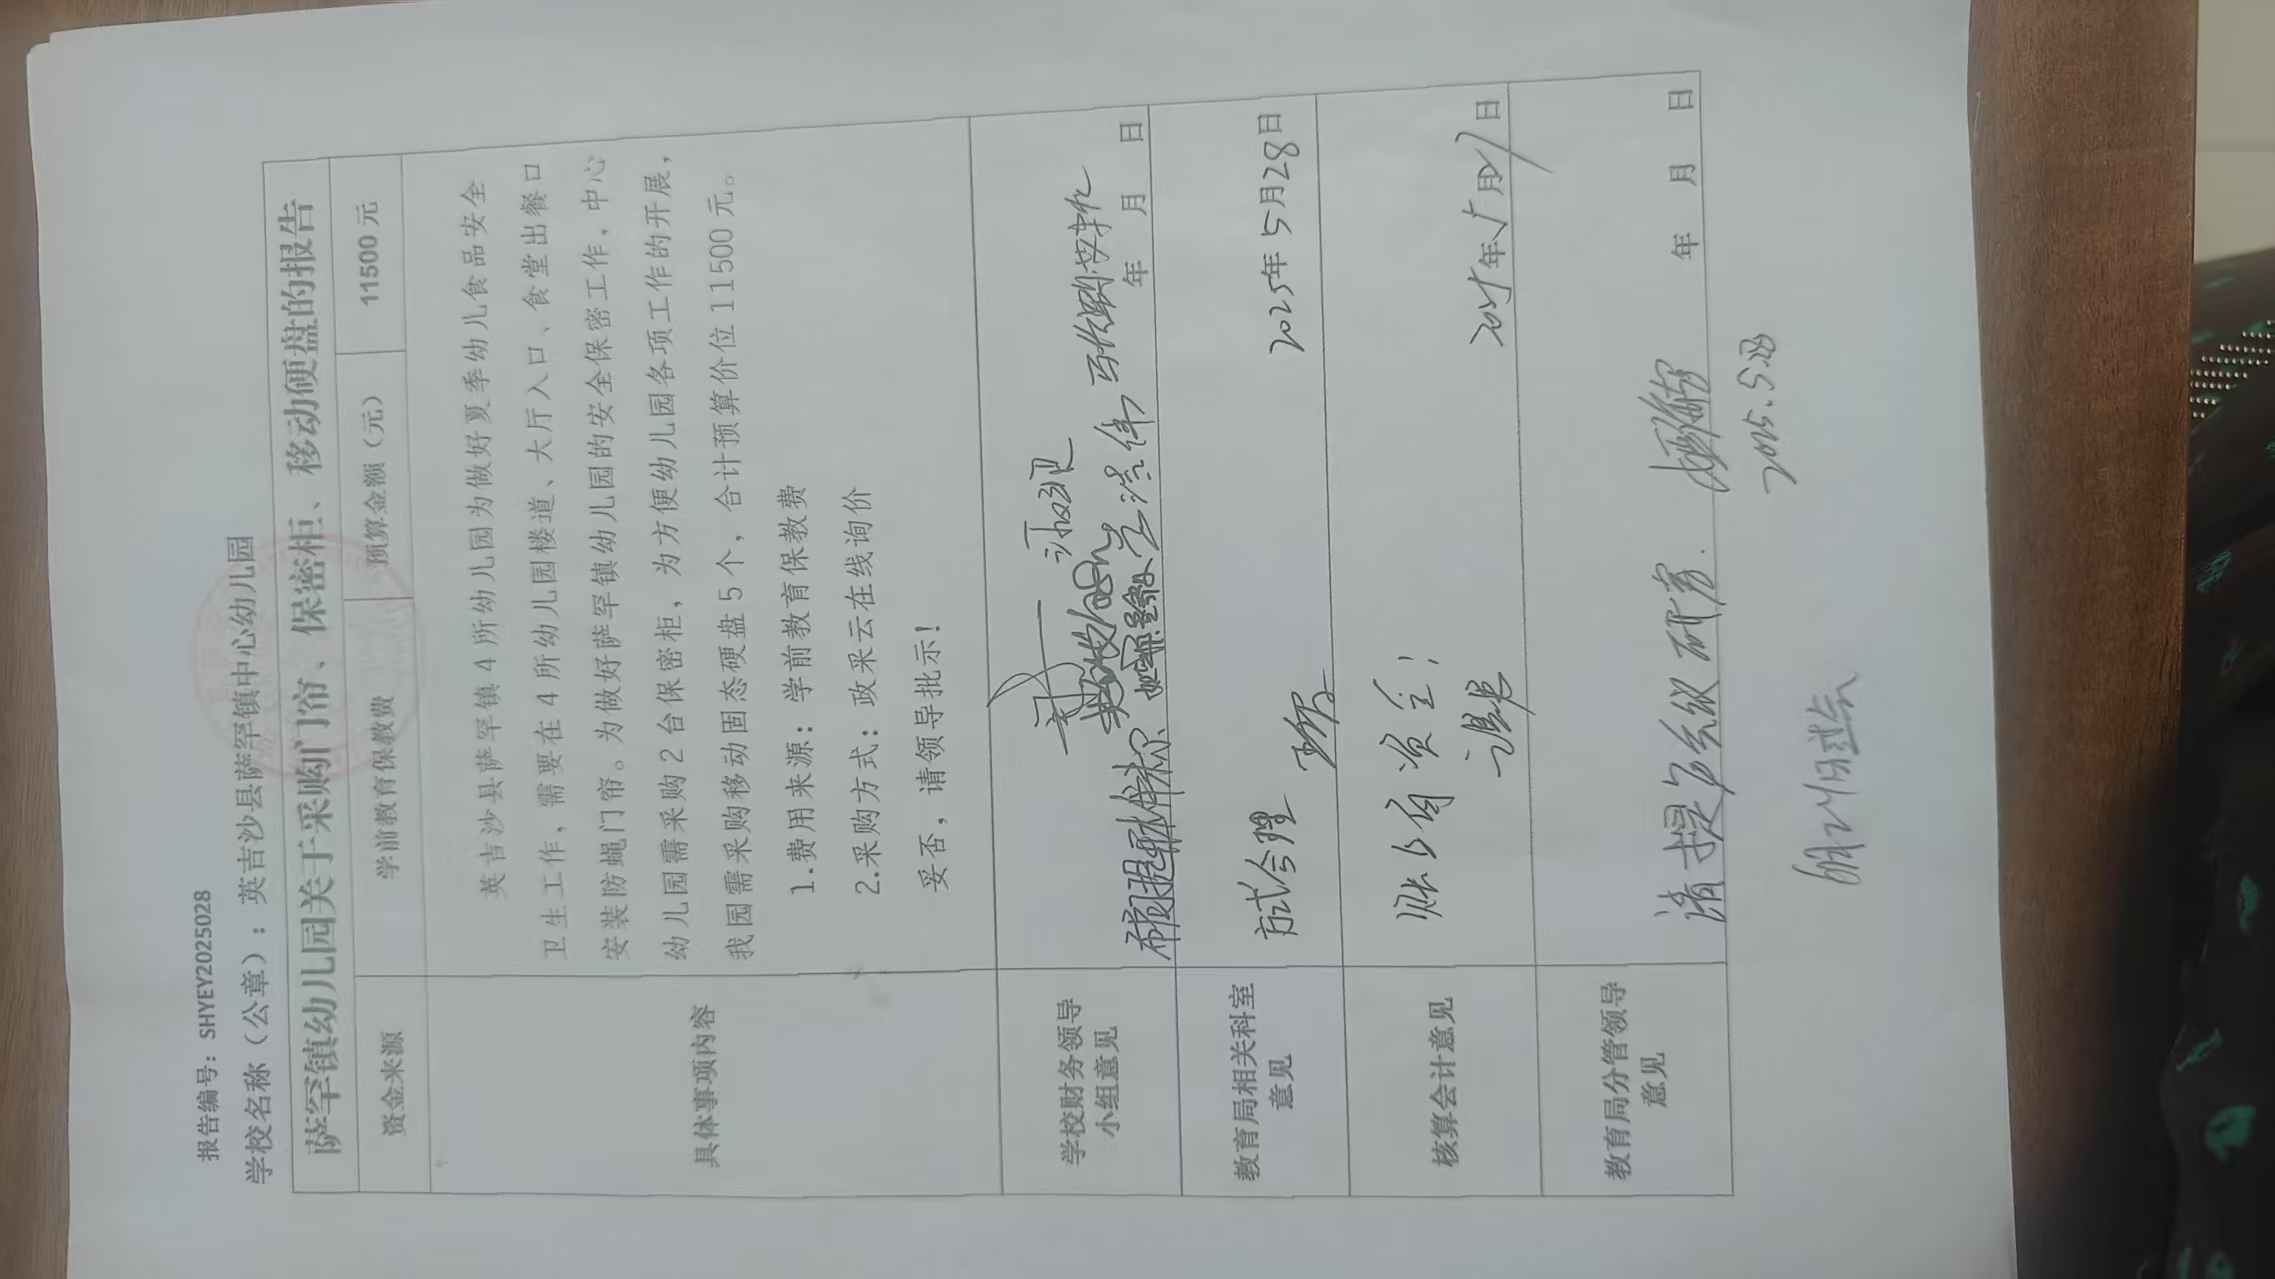 报告编号：SHYEY2025028
学校名称（公章）：英吉沙县萨罕镇中心幼儿园
萨罕镇幼儿园关于采购门帘、保密柜、移动便盘的报告
资金来源 学前教育保教费 预算金额（元） 11500元
具体事项内容
英吉沙县萨罕镇4所幼儿园为做好夏季幼儿食品安全
卫生工作，需要在4所幼儿园楼道、大厅入口、食堂出餐口
安装防蝇门帘。为做好萨罕镇幼儿园的安全保密工作，中心
幼儿园需采购2台保密柜，为方便幼儿园各项工作的开展，
我园需采购移动固态硬盘5个，合计预算价位11500元。
1.费用来源：学前教育保教费
2.采购方式：政采云在线询价
妥否，请领导批示！
学校财务领导
小组意见
年 月 日
教育局相关科室
意见
方式合理
2025年5月28日
核算会计意见
账上有资金！
2025年5月 日
教育局分管领导
意见
请提交 研究.
年 月 日
2025.5.